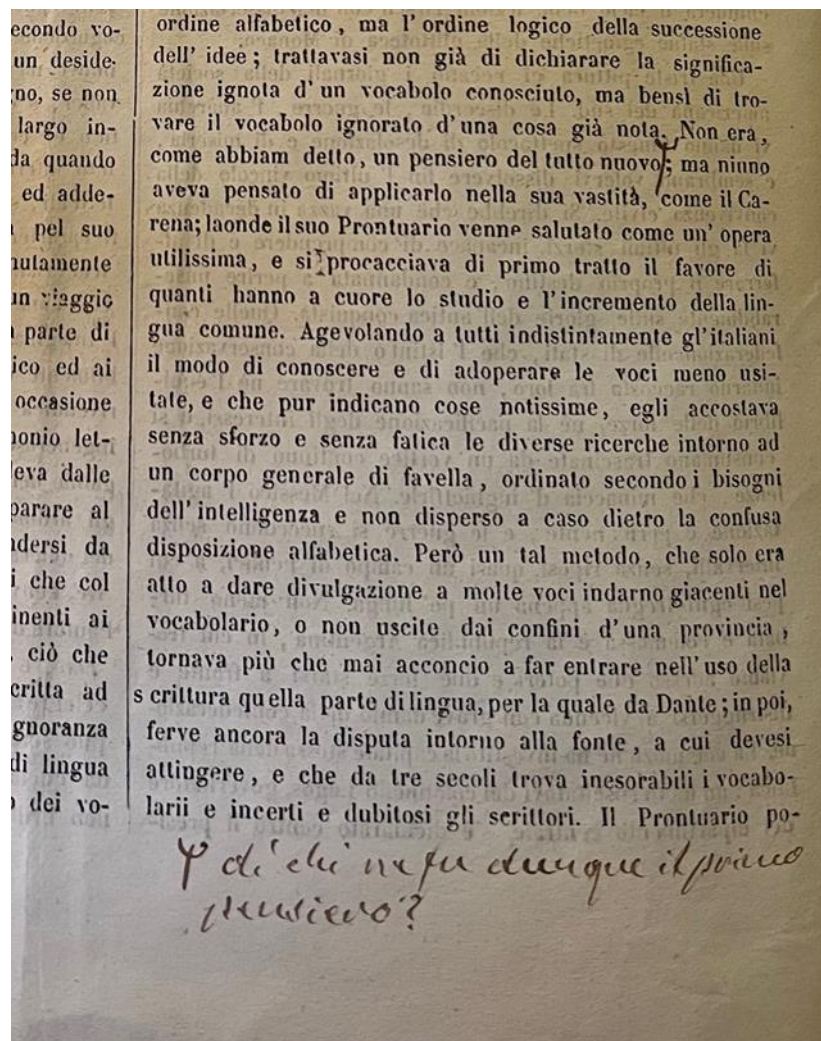 econdo vo-
un deside-
no, se non
largo in-
da quando
ed adde-
pel suo
nutamente
un viaggio
parte di
ico ed ai
occasione
nonio let-
leva dalle
parare al
ndersi da
i che col
inenti ai
ciò che
critta ad
gnoranza
di lingua
dei vo-
ordine alfabetico, ma l'ordine logico della successione
dell'idee; trattavasi non già di dichiarare la significa-
zione ignota d'un vocabolo conosciuto, ma bensì di tro-
vare il vocabolo ignorato d'una cosa già nota. Non era,
come abbiam detto, un pensiero del tutto nuovo; ma niuno
aveva pensato di applicarlo nella sua vastità, come il Ca-
rena; laonde il suo Prontuario venne salutato come un'opera
utilissima, e si procacciava di primo tratto il favore di
quanti hanno a cuore lo studio e l'incremento della lin-
gua comune. Agevolando a tutti indistintamente gl'italiani
il modo di conoscere e di adoperare le voci meno usi-
tate, e che pur indicano cose notissime, egli accostava
senza sforzo e senza fatica le diverse ricerche intorno ad
un corpo generale di favella, ordinato secondo i bisogni
dell'intelligenza e non disperso a caso dietro la confusa
disposizione alfabetica. Però un tal metodo, che solo era
atto a dare divulgazione a molte voci indarno giacenti nel
vocabolario, o non uscite dai confini d'una provincia,
tornava più che mai acconcio a far entrare nell'uso della
s crittura quella parte di lingua, per la quale da Dante; in poi,
ferve ancora la disputa intorno alla fonte, a cui devesi
attingere, e che da tre secoli trova inesorabili i vocabo-
larii e incerti e dubitosi gli scrittori. Il Prontuario po-
di chi ne fu dunque il primo
pensiero?